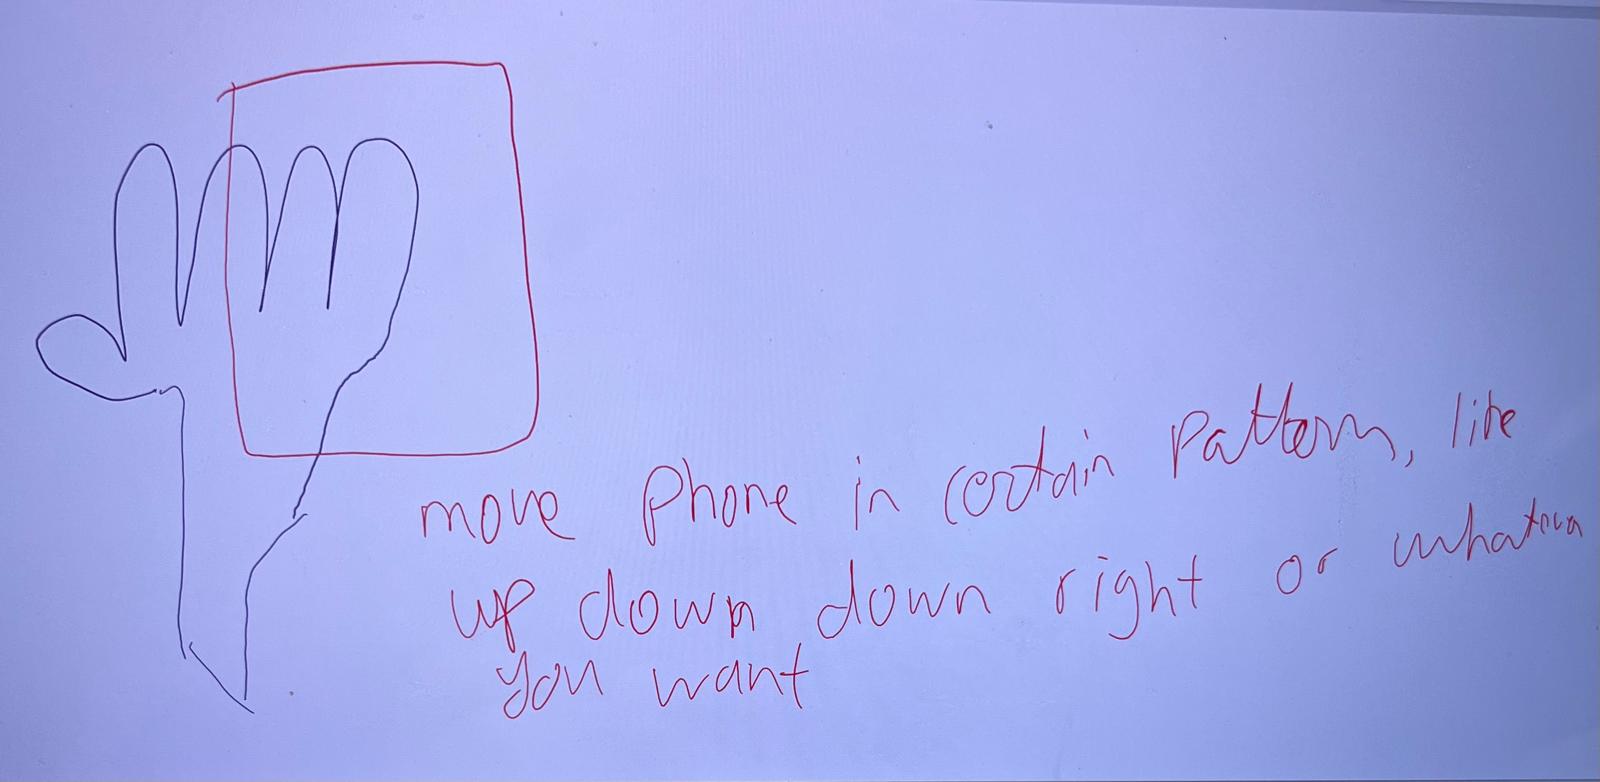 move phone in certain pattern, like
up down down right or whatever
you want